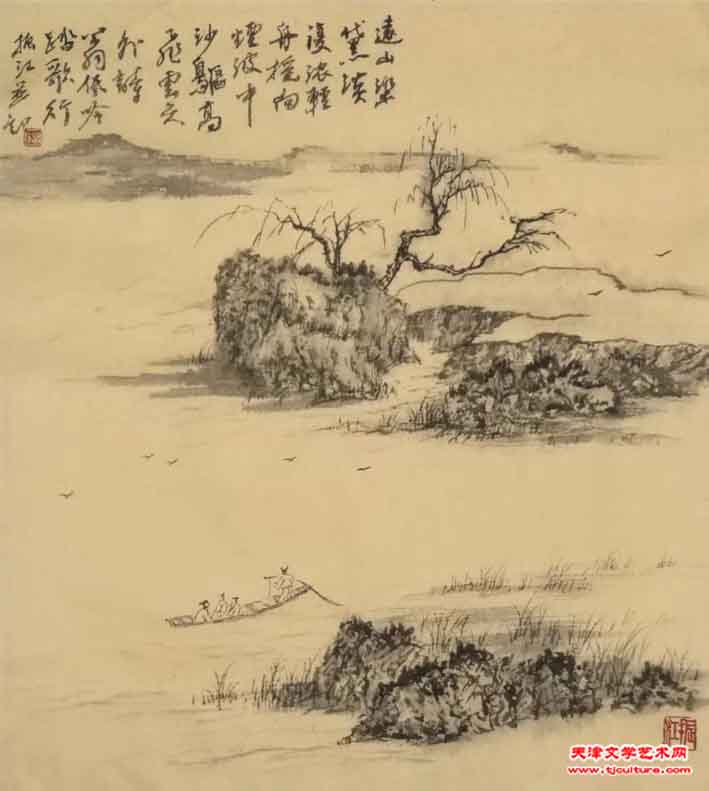 遠山染
黛淡
復濃輕
舟搖向
煙波中
沙鷗高
飛雲天
外詩
翁低吟
踏歌行
振江並記
振江
天津文学艺术网
www.tjculture.com